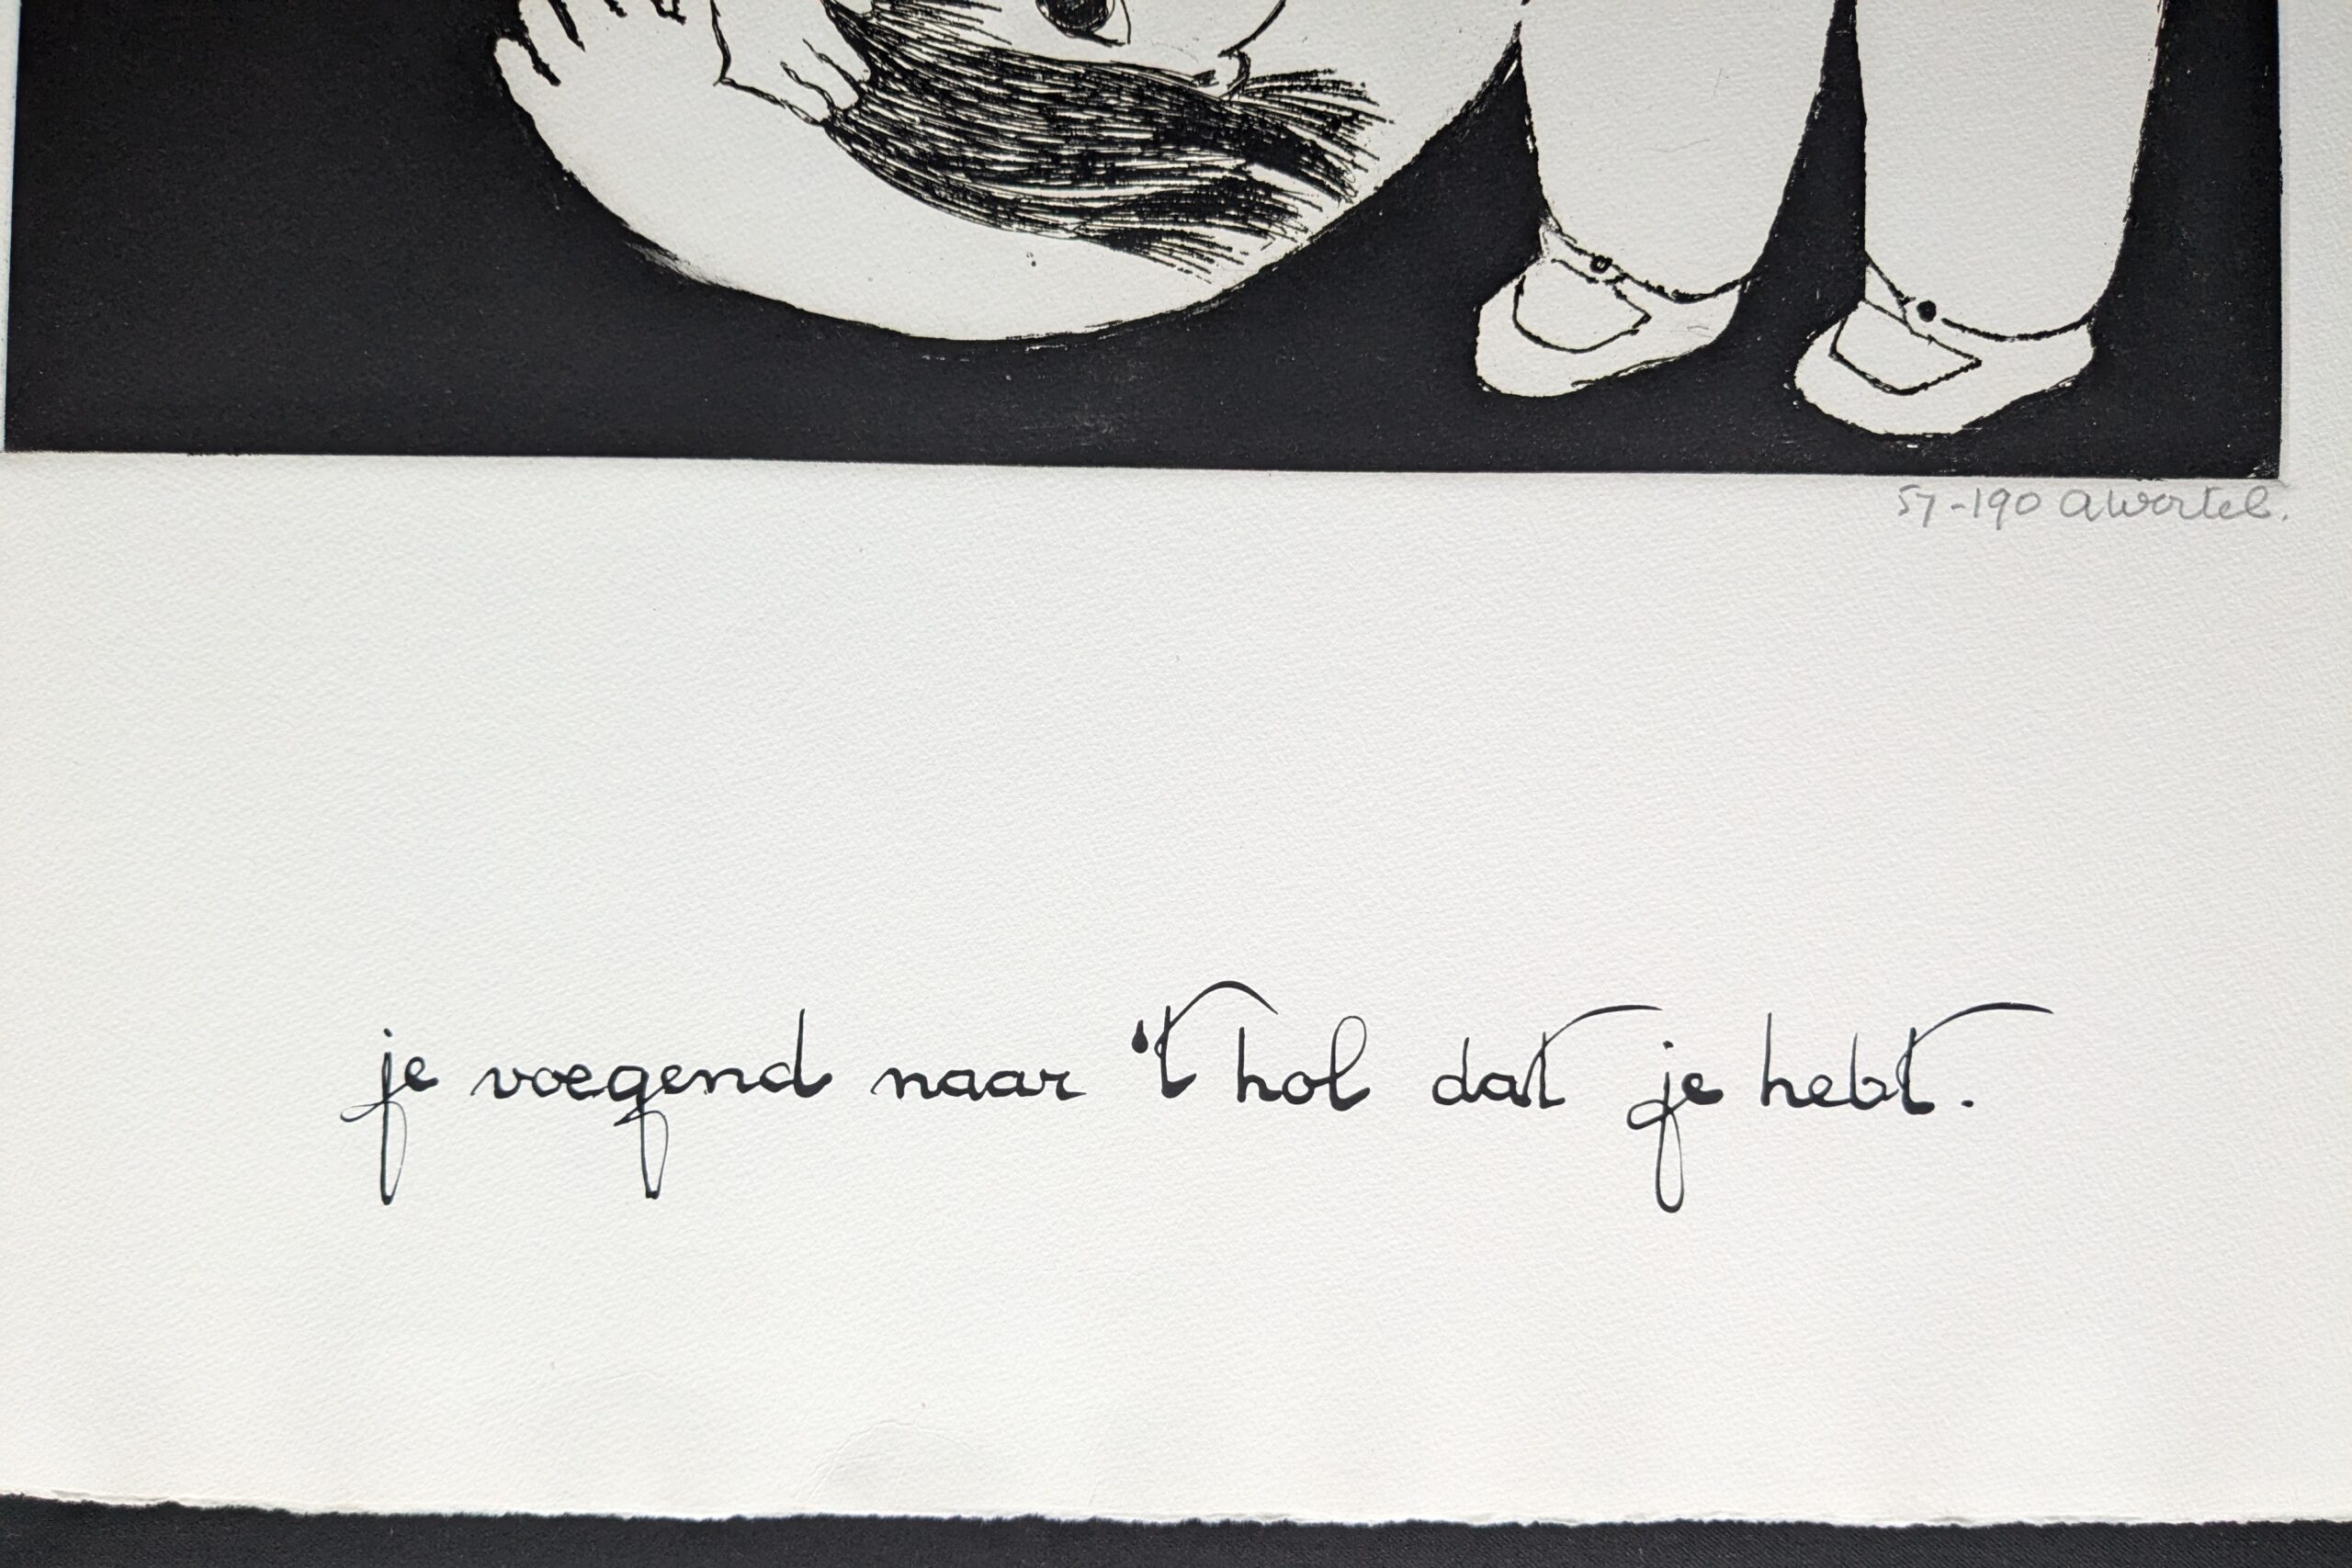 57-190 AWortel.
je voegend naar 't hol dat je hebt.